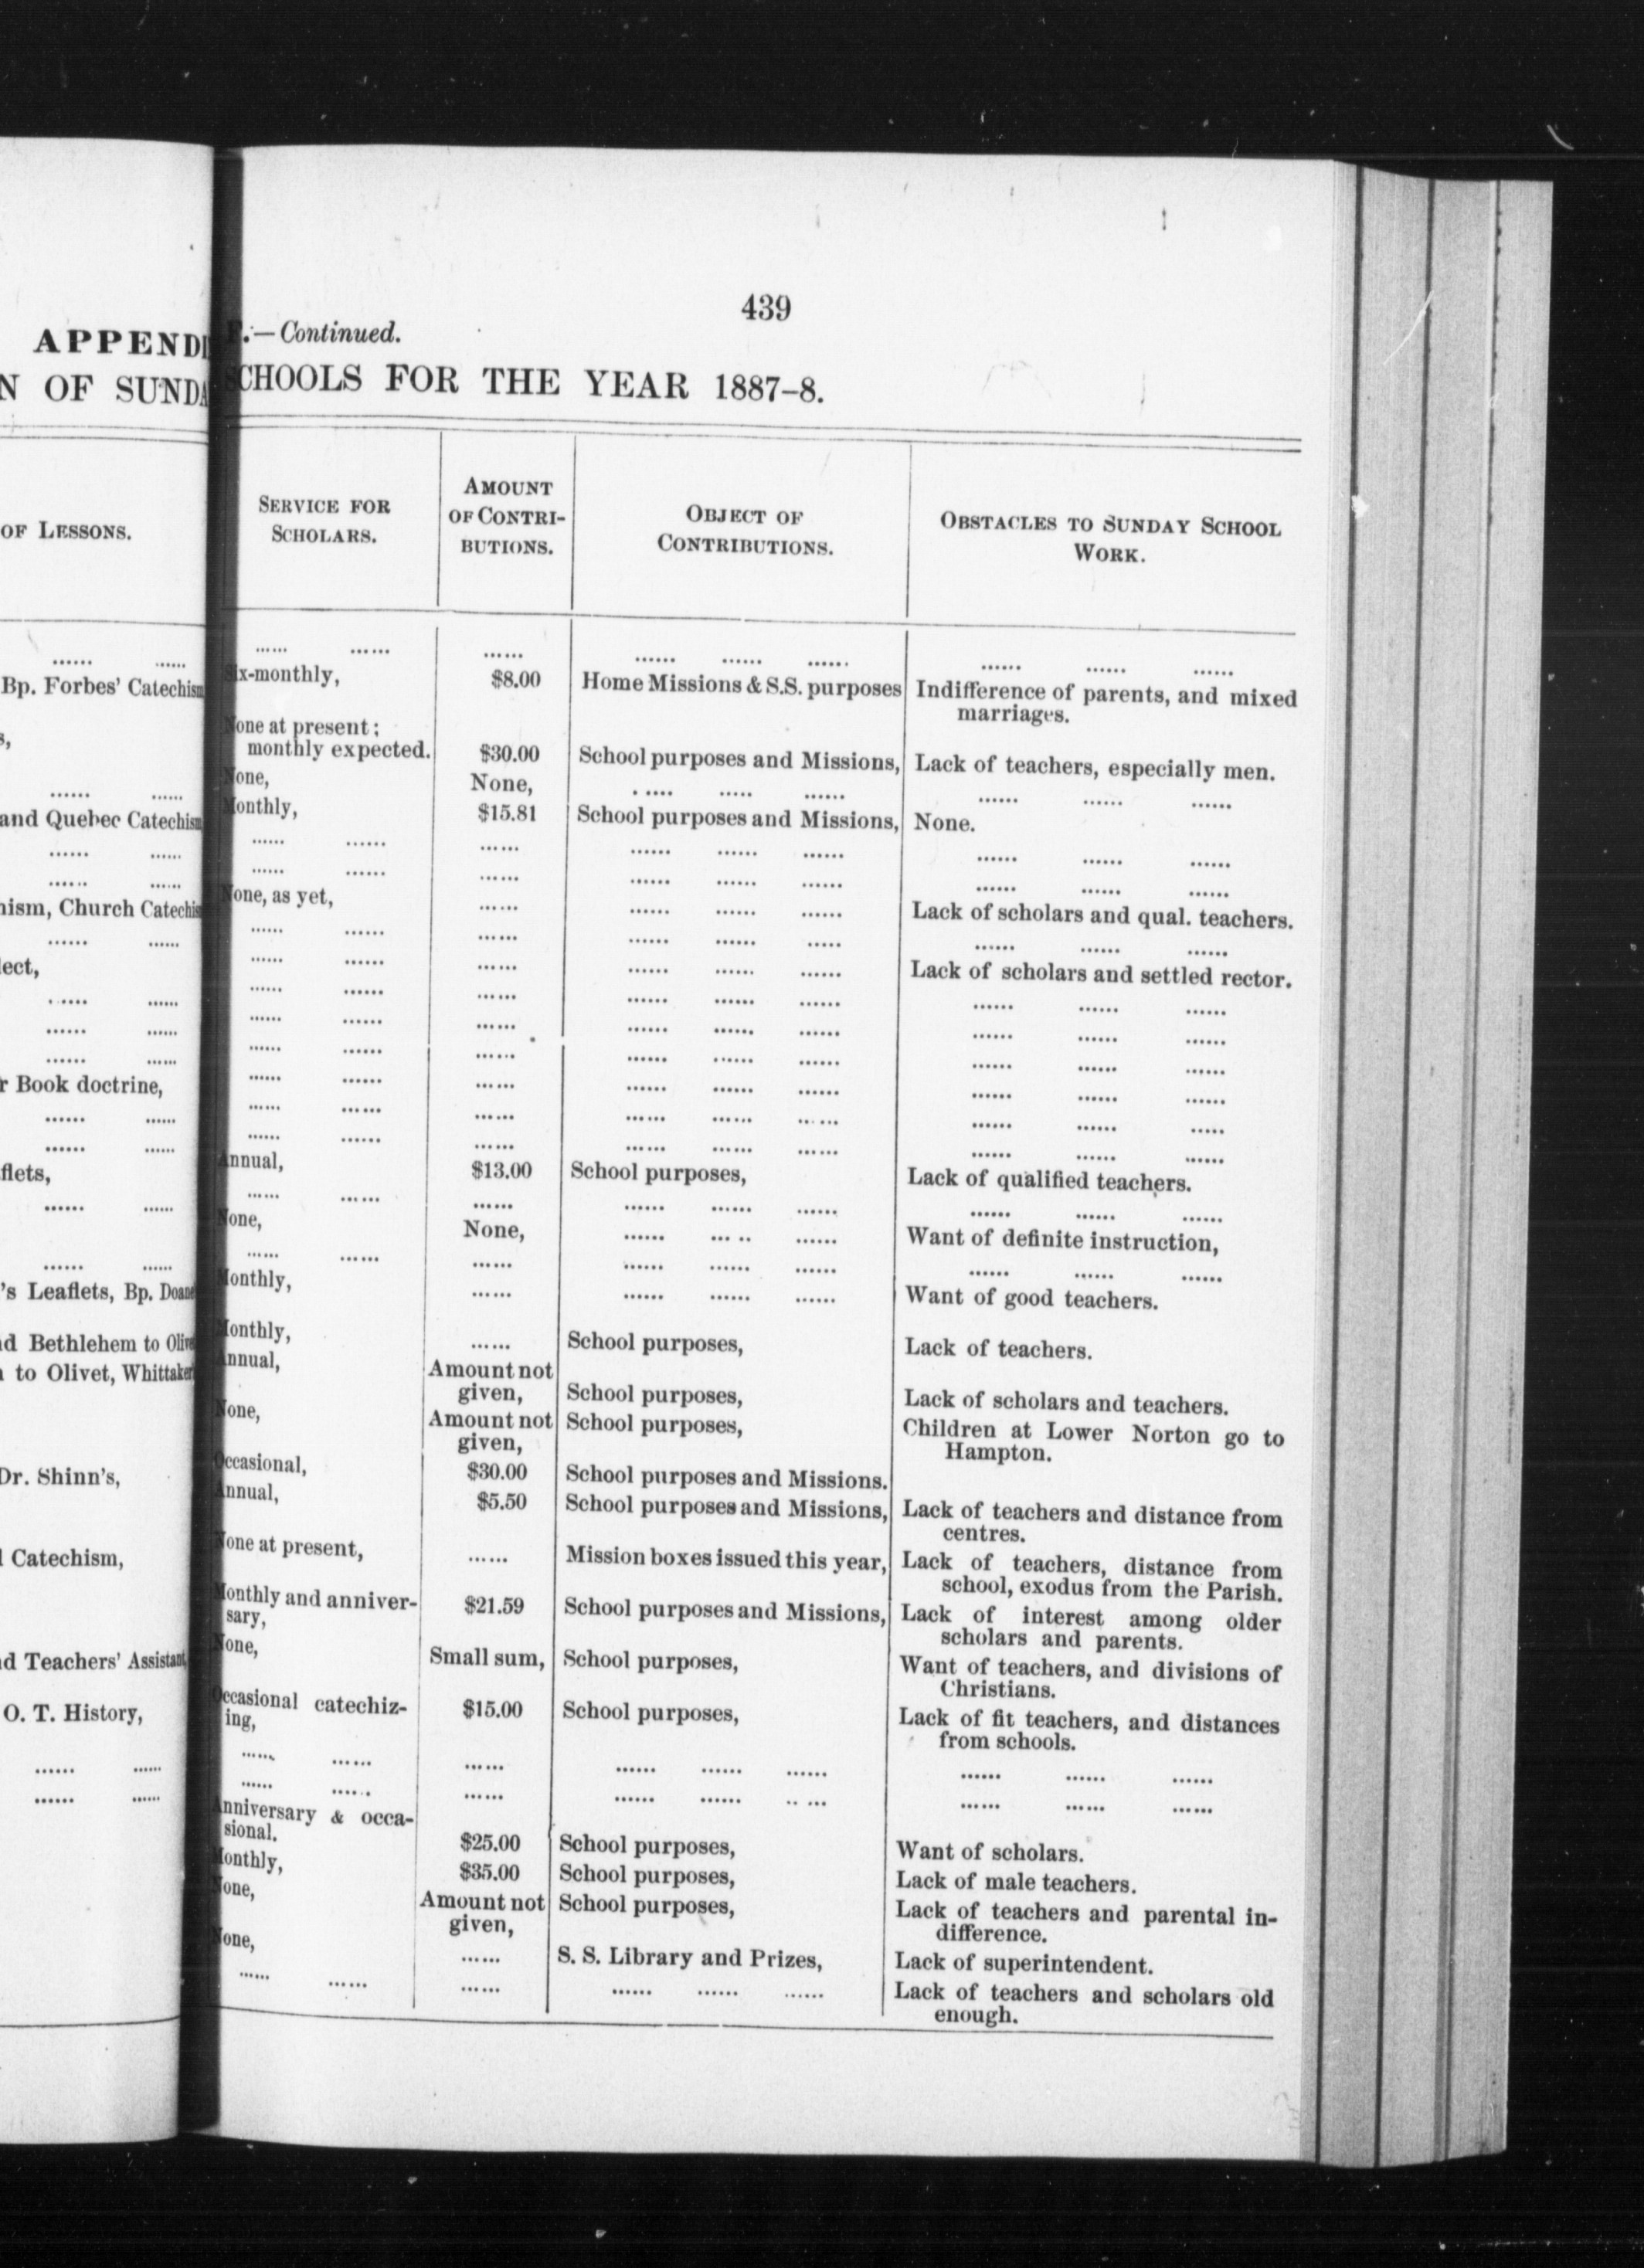 439
APPENDI
F.—Continued.
N OF SUNDA
SCHOOLS FOR THE YEAR 1887-8.
OF LESSONS.
SERVICE FOR
SCHOLARS.
AMOUNT
OF CONTRI-
BUTIONS.
OBJECT OF
CONTRIBUTIONS.
OBSTACLES TO SUNDAY SCHOOL
WORK.
...... ......
...... ...... ...... ...... ...... ...... ...... ...... ......
Bp. Forbes' Catechism
Six-monthly, $8.00 Home Missions & S.S. purposes Indifference of parents, and mixed
marriages.
s,
None at present;
monthly expected. $30.00 School purposes and Missions, Lack of teachers, especially men.
...... ......
None, None, ...... ...... ...... ...... ...... ......
and Quebec Catechism
Monthly, $15.81 School purposes and Missions, None.
...... ......
...... ...... ...... ...... ...... ...... ...... ...... ......
...... ......
...... ...... ...... ...... ...... ...... ...... ...... ......
hism, Church Catechis
None, as yet, ...... ...... ...... ...... Lack of scholars and qual. teachers.
...... ......
...... ...... ...... ...... ...... ...... ...... ...... ......
lect,
...... ...... ...... ...... ...... ...... Lack of scholars and settled rector.
...... ......
...... ...... ...... ...... ...... ...... ...... ...... ......
...... ......
...... ...... ...... ...... ...... ...... ...... ...... ......
...... ......
...... ...... ...... ...... ...... ...... ...... ...... ......
r Book doctrine,
...... ...... ...... ...... ...... ...... ...... ...... ......
...... ......
...... ...... ...... ...... ...... ...... ...... ...... ......
...... ......
...... ...... ...... ...... ...... ...... ...... ...... ......
flets,
Annual, $13.00 School purposes, Lack of qualified teachers.
...... ......
...... ...... ...... ...... ...... ...... ...... ...... ......
None, None, ...... ...... ...... Want of definite instruction,
...... ......
...... ...... ...... ...... ...... ...... ...... ...... ......
's Leaflets, Bp. Doane
Monthly, ...... ...... ...... ...... Want of good teachers.
nd Bethlehem to Olive
Monthly, ...... School purposes, Lack of teachers.
to Olivet, Whittaker
Annual, Amount not
given, School purposes, Lack of scholars and teachers.
None, Amount not School purposes, Children at Lower Norton go to
given, Hampton.
Dr. Shinn's,
Occasional, $30.00 School purposes and Missions.
Annual, $5.50 School purposes and Missions, Lack of teachers and distance from
centres.
l Catechism,
None at present, ...... Mission boxes issued this year, Lack of teachers, distance from
school, exodus from the Parish.
Monthly and anniver- $21.59 School purposes and Missions, Lack of interest among older
sary, scholars and parents.
nd Teachers' Assistant,
None, Small sum, School purposes, Want of teachers, and divisions of
Christians.
O. T. History,
Occasional catechiz- $15.00 School purposes, Lack of fit teachers, and distances
ing, from schools.
...... ......
...... ...... ...... ...... ...... ...... ...... ...... ......
...... ......
...... ...... ...... ...... ...... ...... ...... ...... ......
Anniversary & occa-
sional. $25.00 School purposes, Want of scholars.
Monthly, $35.00 School purposes, Lack of male teachers.
None, Amount not School purposes, Lack of teachers and parental in-
given, difference.
None, ...... S. S. Library and Prizes, Lack of superintendent.
...... ...... ...... ...... ...... ...... Lack of teachers and scholars old
enough.